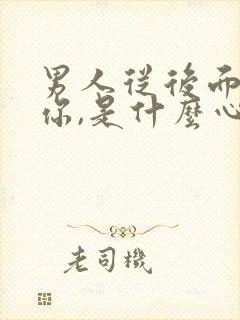 男人從後面
你,是什麼心
老司機